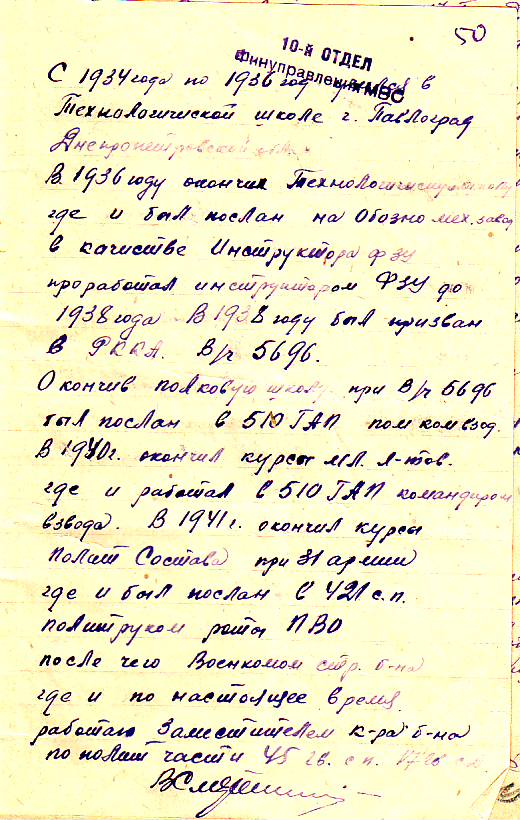 50
10-й ОТДЕЛ
Финуправления МВС
С 1934 года по 1936 год в
Технологичиской школе г. Павлоград
Днепропетровской обл.
В 1936 году окончил
где и был послан на Обозно мех. завод
в качистве Инструктора ФЗУ
проработал инструктором ФЗУ до
1938 года В 1938 году был призван
в РККА. В/ч 5696.
Окончив полковую школу при В/ч 5696
был послан в 510 ГАП пом ком взод.
В 1940 г. окончил курсы мл. л-тов.
где и работал в 510 ГАП командиром
взвода. В 1941 г. окончил курсы
полит Состава при 31 армии
где и был послан в 421 с.п.
политруком роты ПВО
после чего Военкомом стр. б-на
где и по настоящее время
работаю Заместителем к-ра б-на
по полит части 45 гв. с.п.